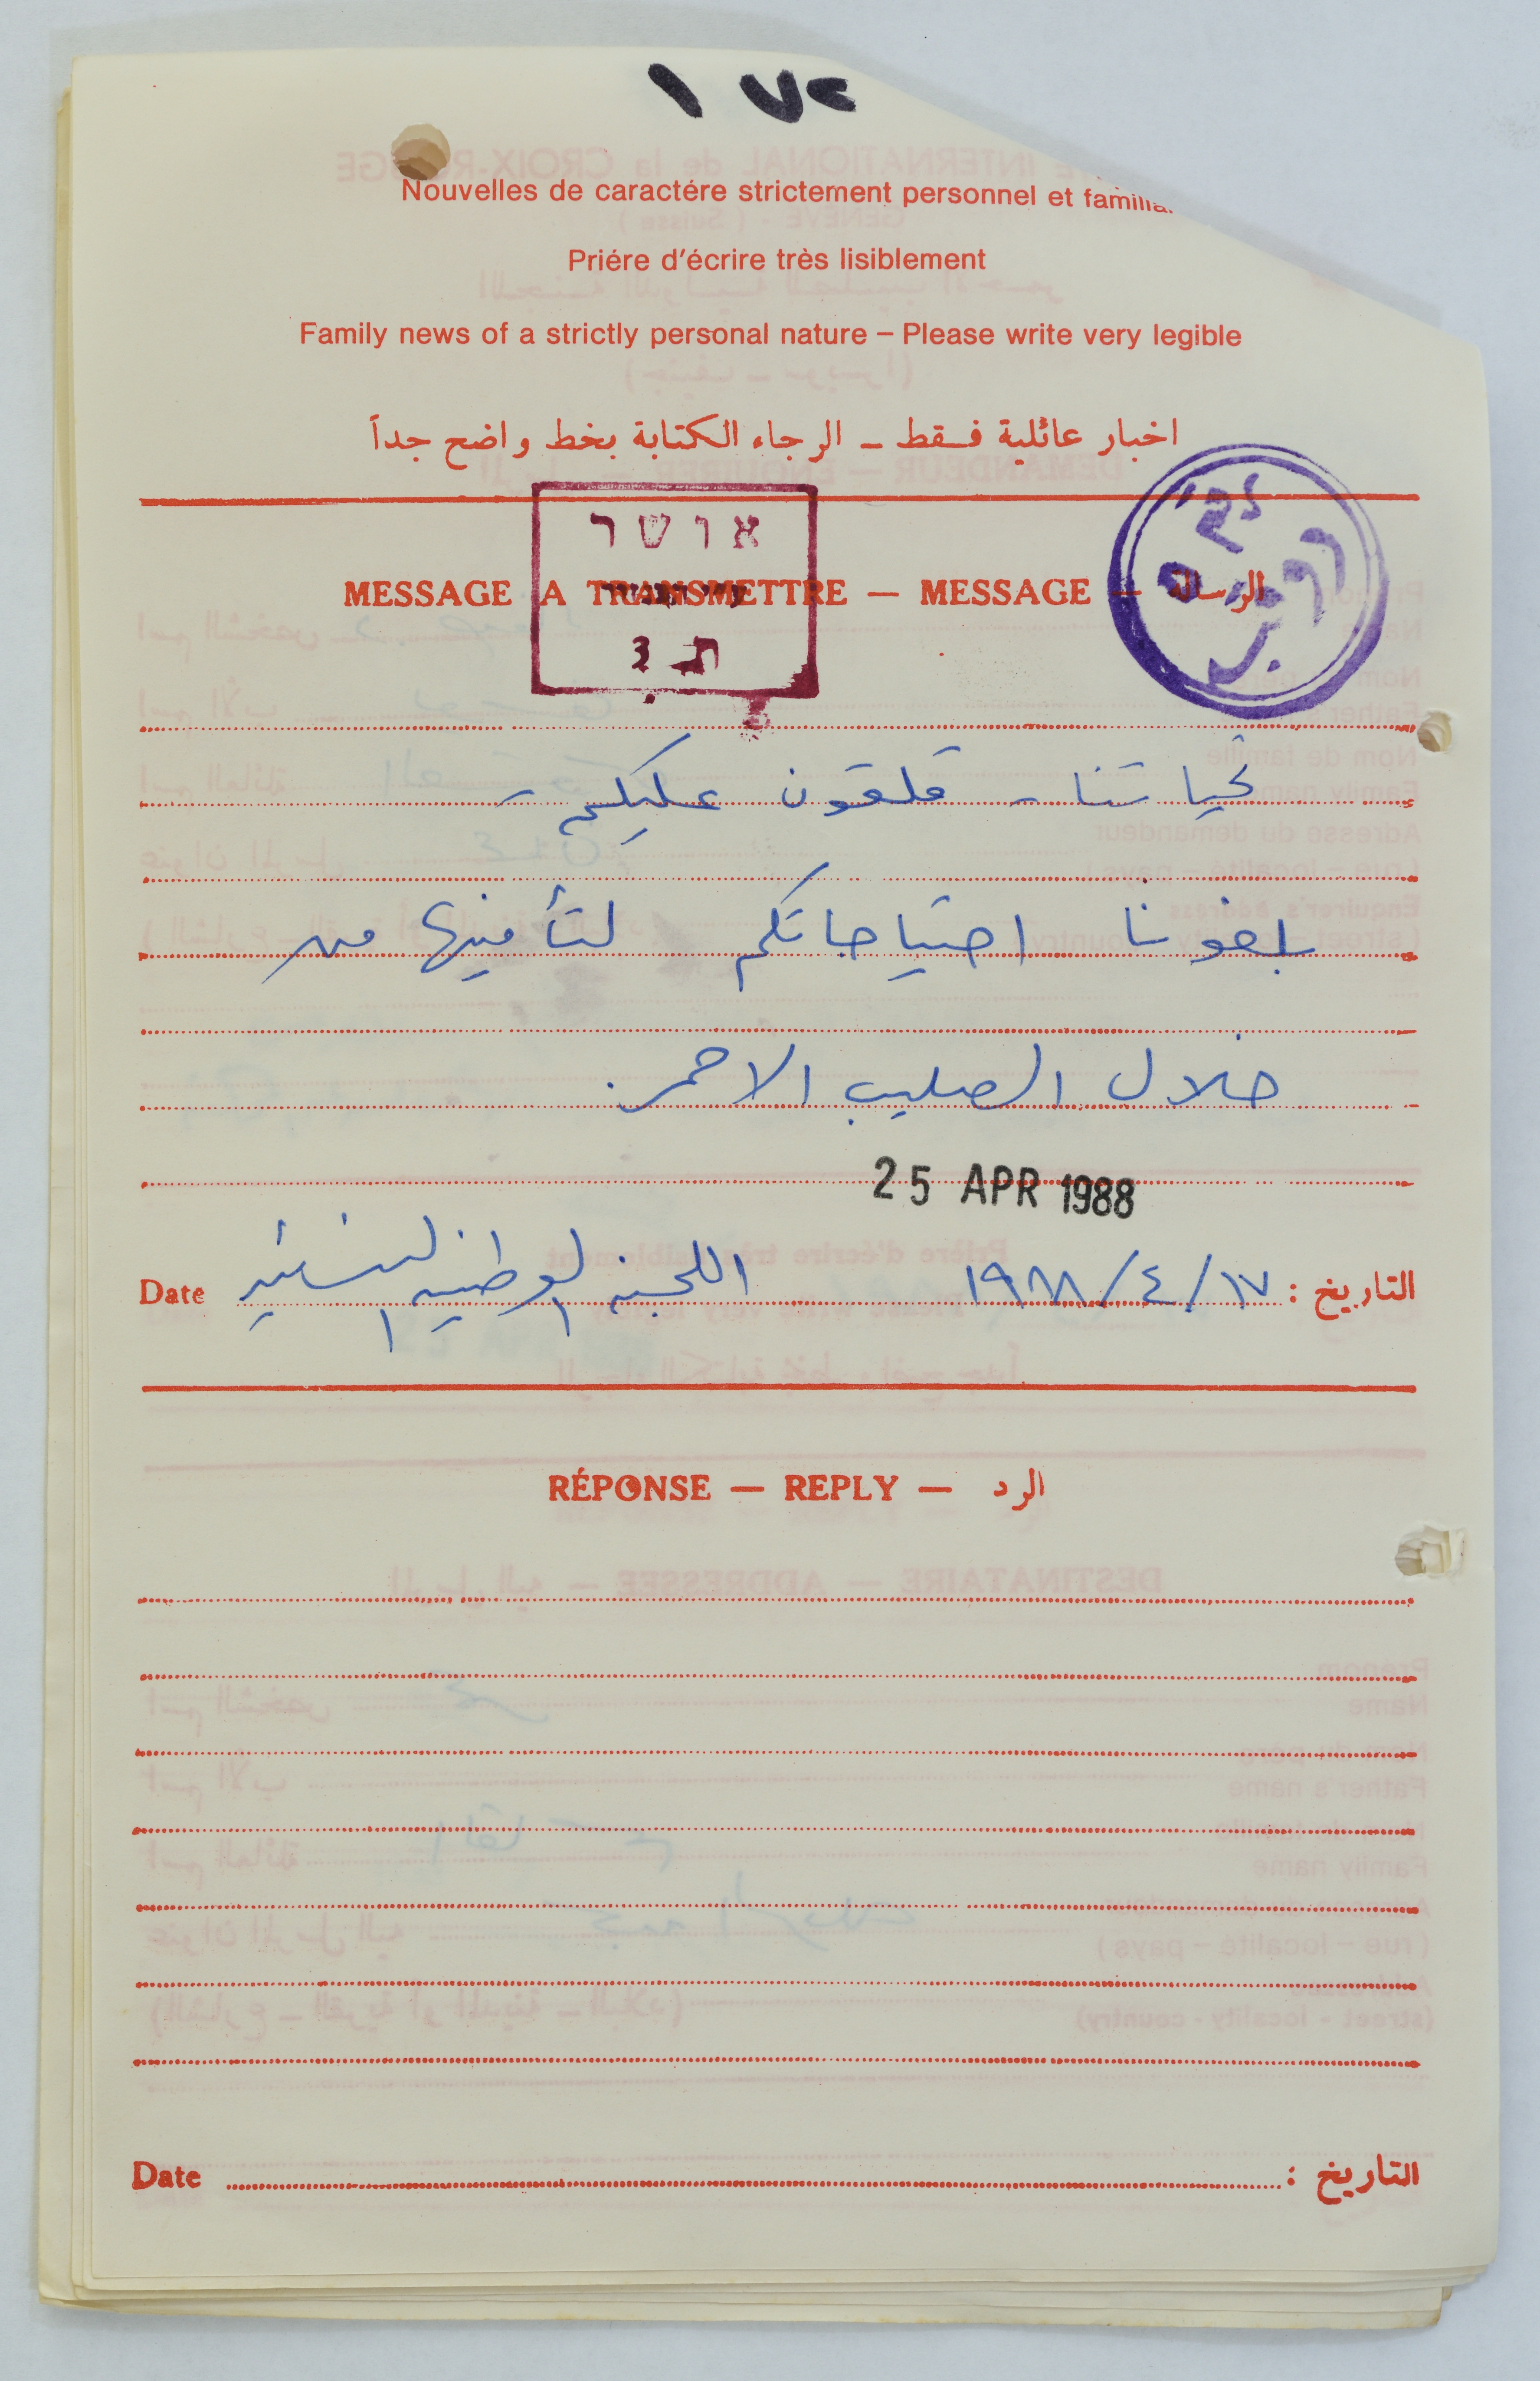 ١٧٢
Nouvelles de caractére strictement personnel et familia
Priére d'écrire très lisiblement
Family news of a strictly personal nature – Please write very legible
اخبار عائلية فقط ــ الرجاء الكتابة بخط واضح جداً
אושר
MESSAGE A TRANSMETTRE — MESSAGE — الرسالة
تحياتنا - قلقون عليكم -
بلغونا احتياجاتكم لتأمينها من
خلال الصليب الاحمر.
25 APR 1988
Date اللجنة الوطنية النسائية ١٩٨٨/٤/١٧ التاريخ :
RÉPONSE — REPLY — الرد
Date التاريخ :